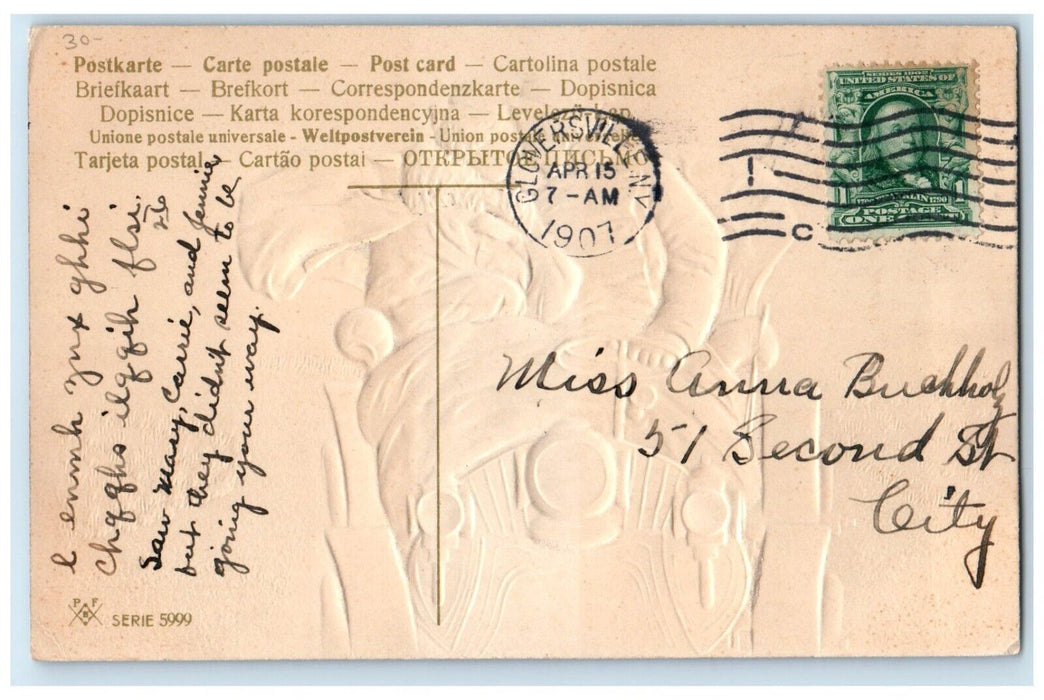 30-
Postkarte — Carte postale — Post card — Cartolina postale
Briefkaart — Brefkort — Correspondenzkarte — Dopisnica
Dopisnice — Karta korespondencyjna — Levelező-Lap
Unione postale universale - Weltpostverein - Union postale universelle
Tarjeta postal — Cartão postal — ОТКРЫТОЕ ПИСЬМО
GLOVERSVILLE, N.Y.
APR 15
7-AM
1907
C
SERIES 1902
UNITED STATES OF
AMERICA
FRANKLIN 1790
1 POSTAGE 1
ONE
Saw Mary, Carrie, and Jennie,
but they didn't seem to be
going your way.
Miss Anna Buchholz
51 Second St
City
P F B
SERIE 5999